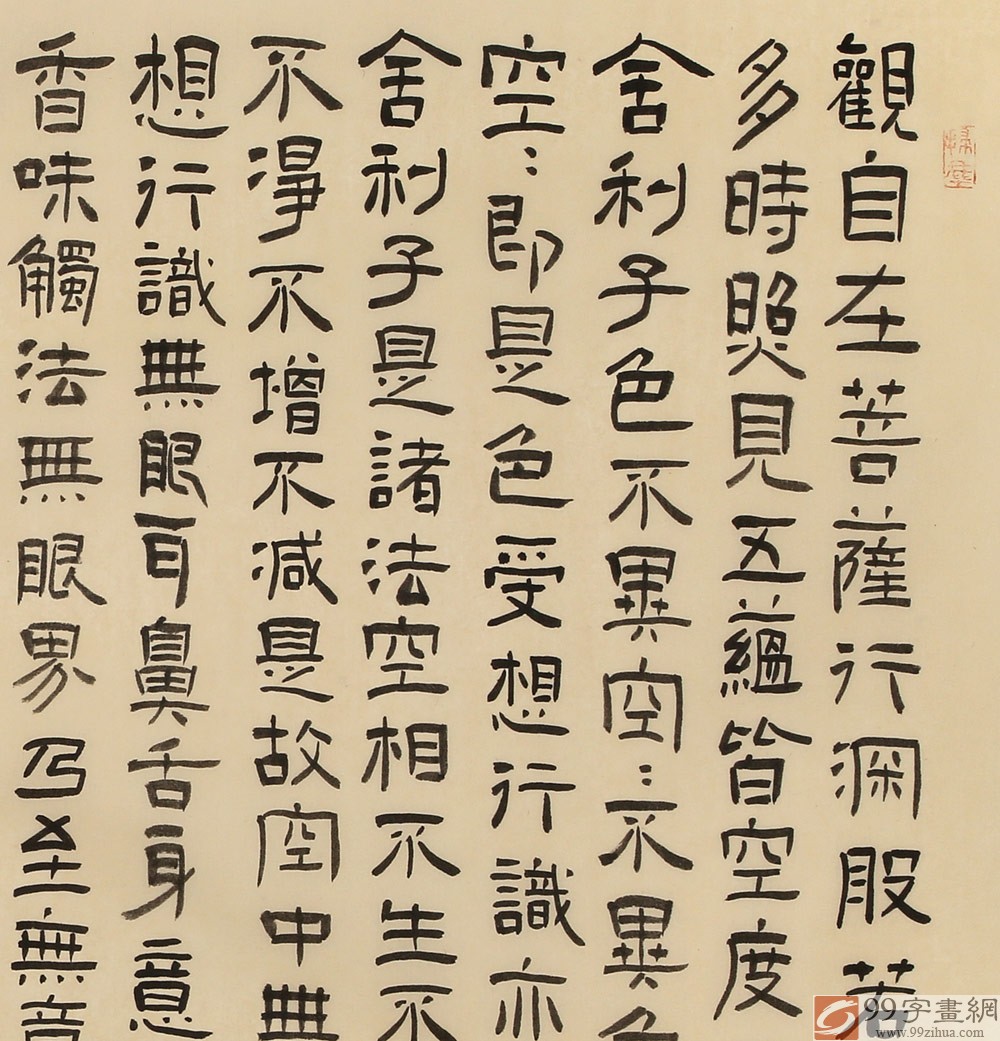 觀自在菩薩行深般若
多時照見五蘊皆空度
舍利子色不異空〻不異色
空〻即是色受想行識亦
舍利子是諸法空相不生不
不淨不增不減是故空中無
想行識無眼耳鼻舌身意
香味觸法無眼界乃至無意
99字畫網
www.99zihua.com